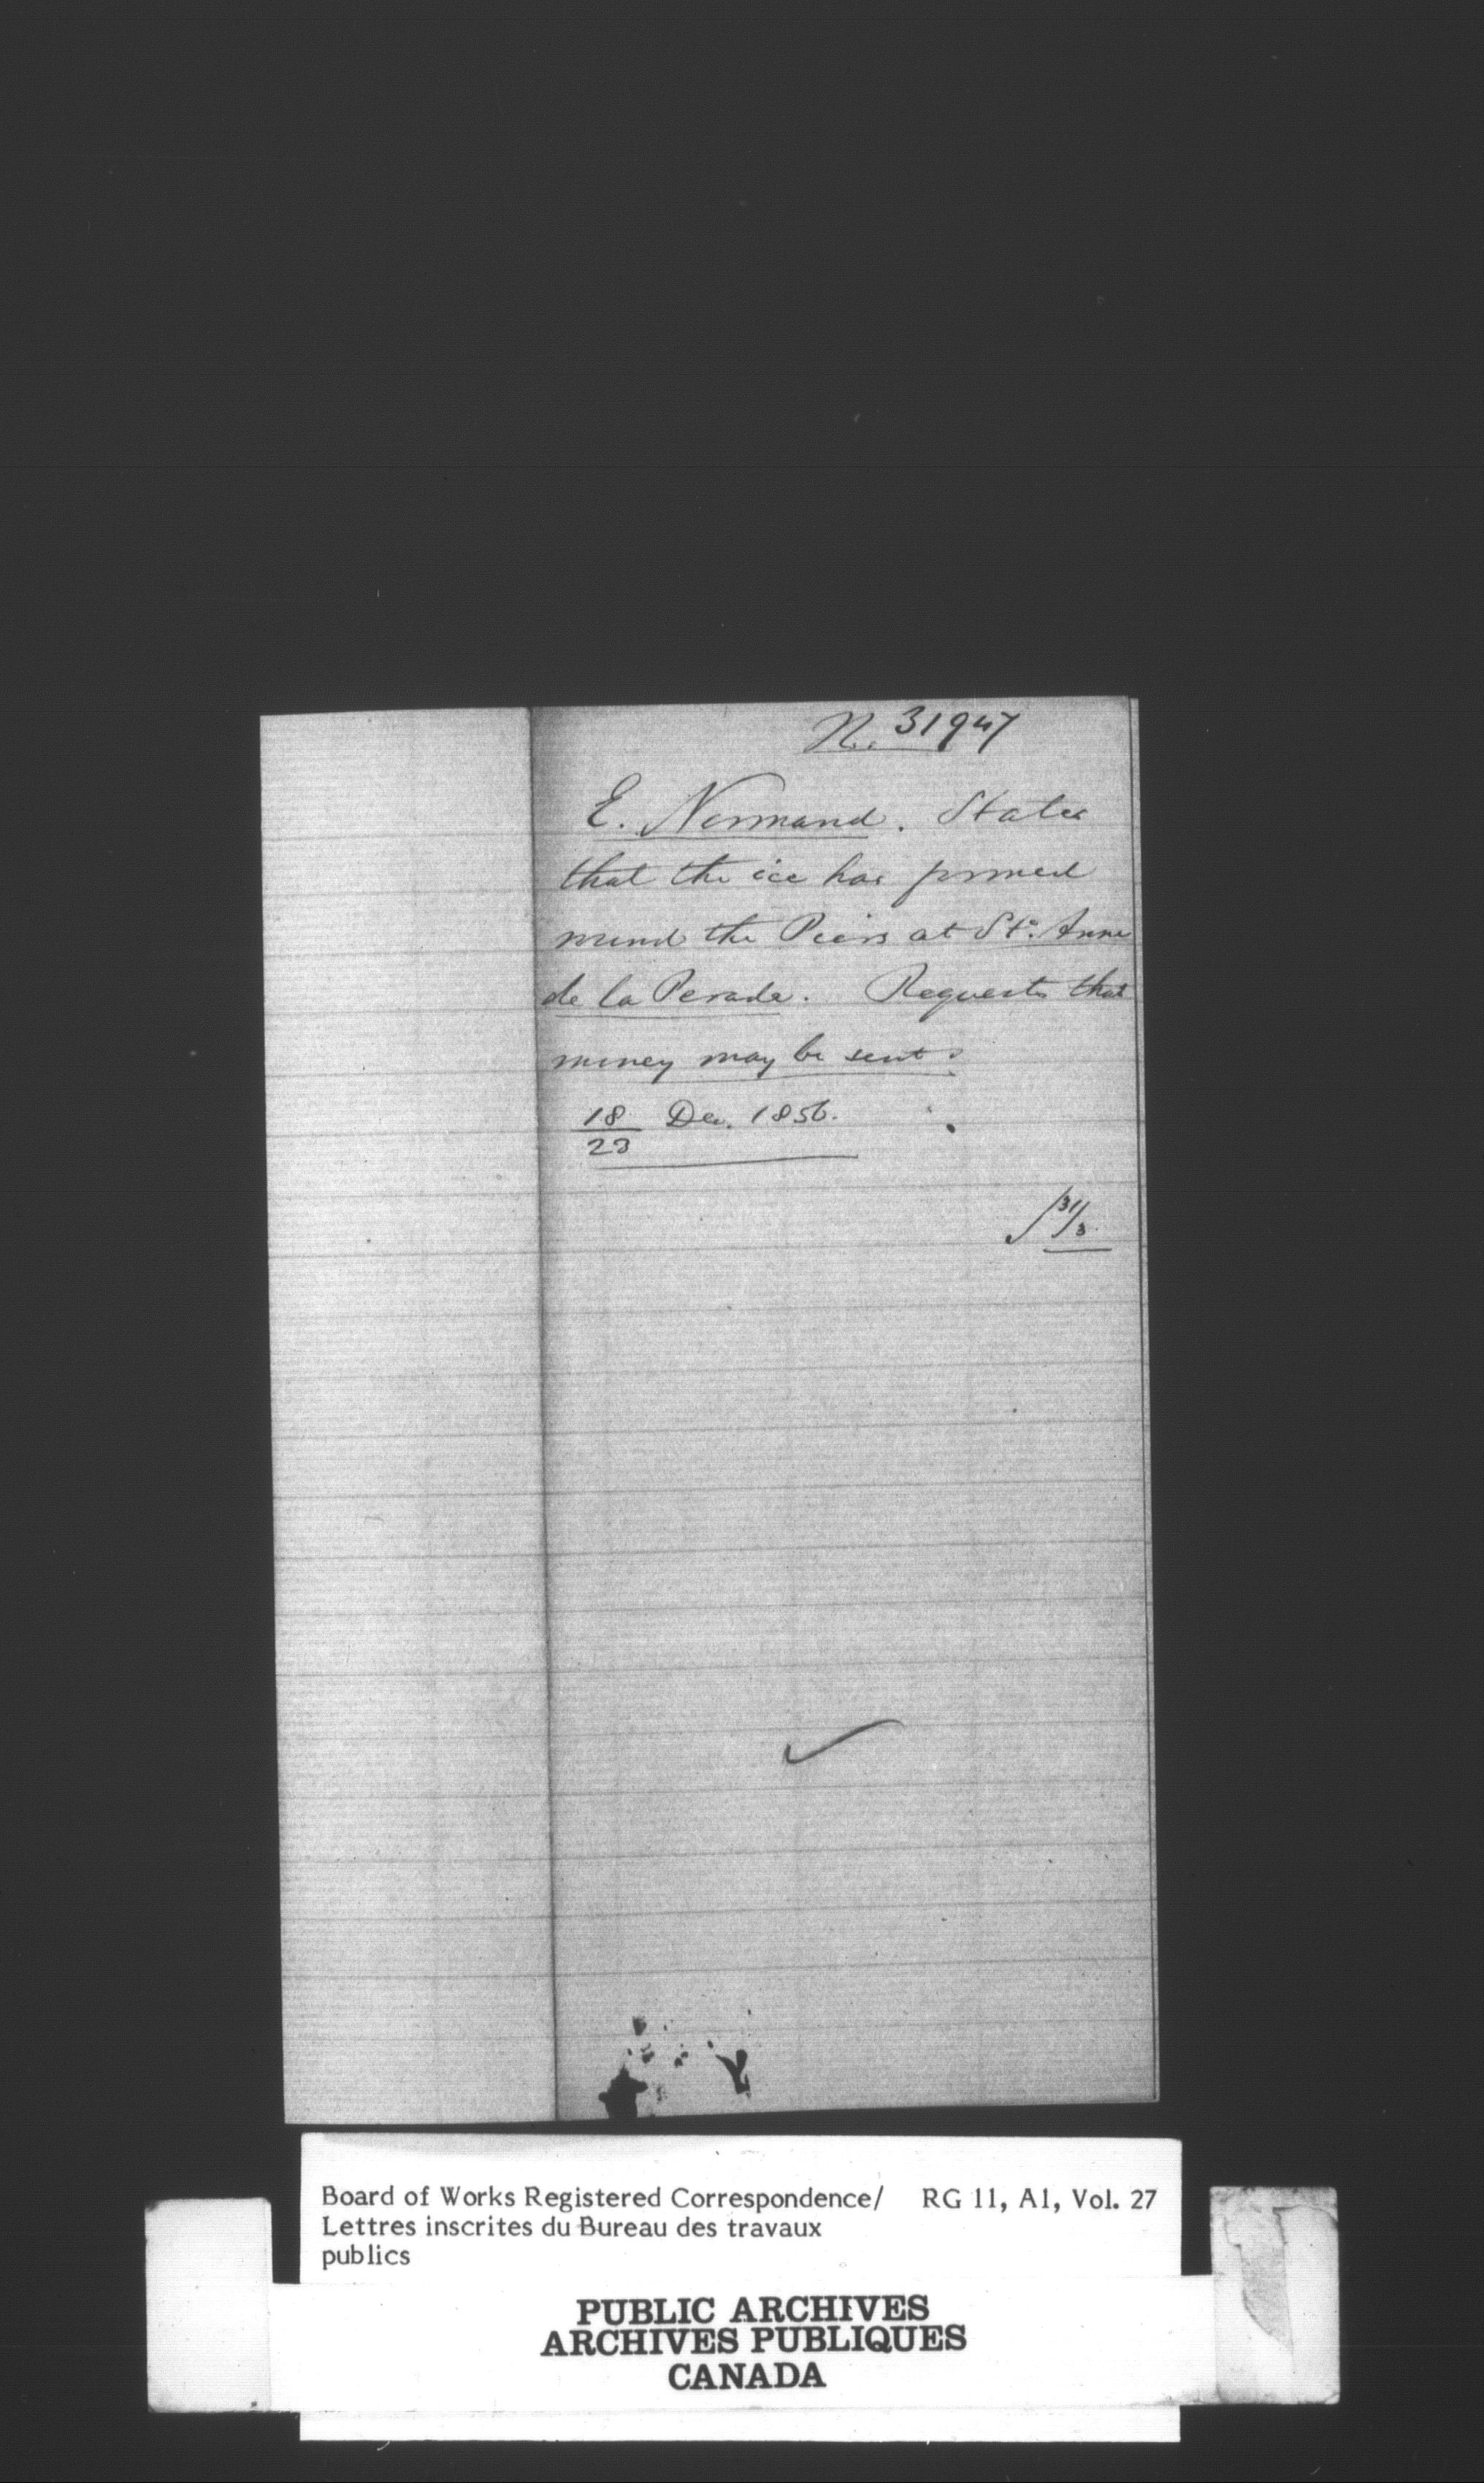 No. 31947
E. Normand. States
that the ice has formed
round the Piers at Ste. Anne
de la Perade. Requests that
money may be sent.
18 Dec. 1856.
23
31/3
Board of Works Registered Correspondence/ RG 11, A1, Vol. 27
Lettres inscrites du Bureau des travaux
publics
PUBLIC ARCHIVES
ARCHIVES PUBLIQUES
CANADA